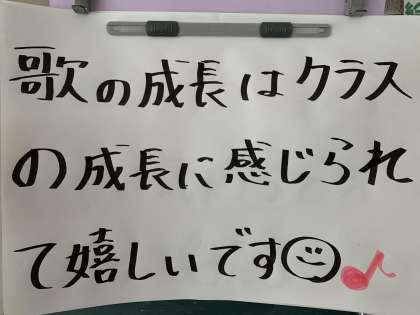 歌の成長はクラス
の成長に感じられ
て嬉しいです☺♪